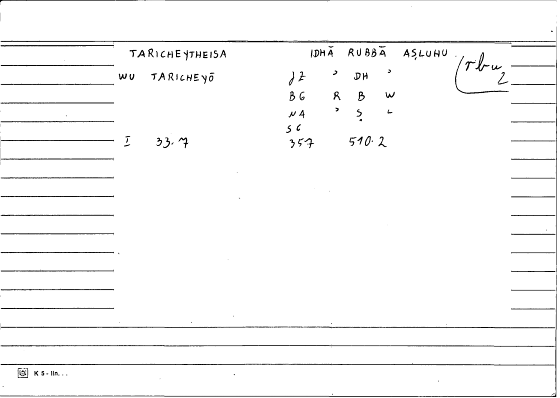 TARICHEYTHEISA IDHĀ RUBBĀ AṢLUHU (rbw 2
WU TARICHEYŌ JZ ʾ DH ʾ
BG R B W
NA ʾ Ṣ L
SG
I 33.7 357 510.2
K 5 - lin. . .